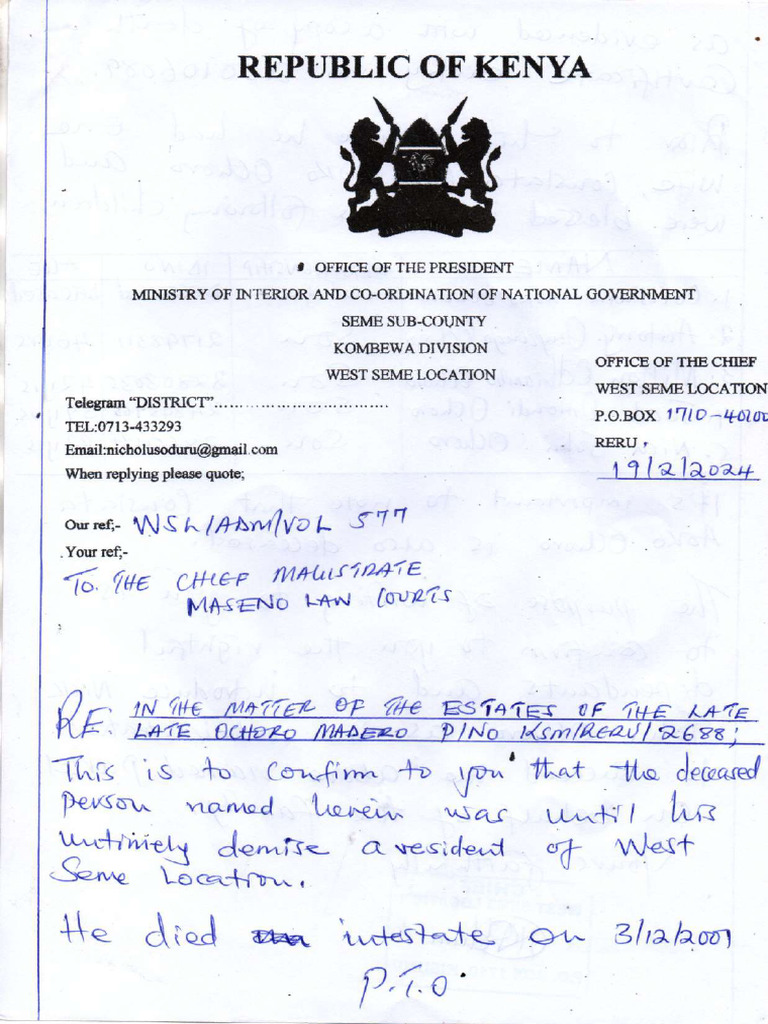 REPUBLIC OF KENYA
OFFICE OF THE PRESIDENT
MINISTRY OF INTERIOR AND CO-ORDINATION OF NATIONAL GOVERNMENT
SEME SUB-COUNTY
KOMBEWA DIVISION
WEST SEME LOCATION
OFFICE OF THE CHIEF
WEST SEME LOCATION
P.O.BOX 1710-40100
RERU,
19/2/2024
Telegram "DISTRICT"........................................
TEL:0713-433293
Email:nicholusoduru@gmail.com
When replying please quote;
Our ref;- WSL/ADM/VOL 577
.Your ref;-
To. THE CHIEF MAGISTRATE
MASENO LAW COURTS
RE: IN THE MATTER OF THE ESTATES OF THE LATE
LATE OCHORO MADERO P/NO KSM/RERU/2688;
This is to confirm to you that the deceased
person named herein was until his
untimely demise a resident of West
Seme Location.
He died intestate on 3/12/2001
P.T.O